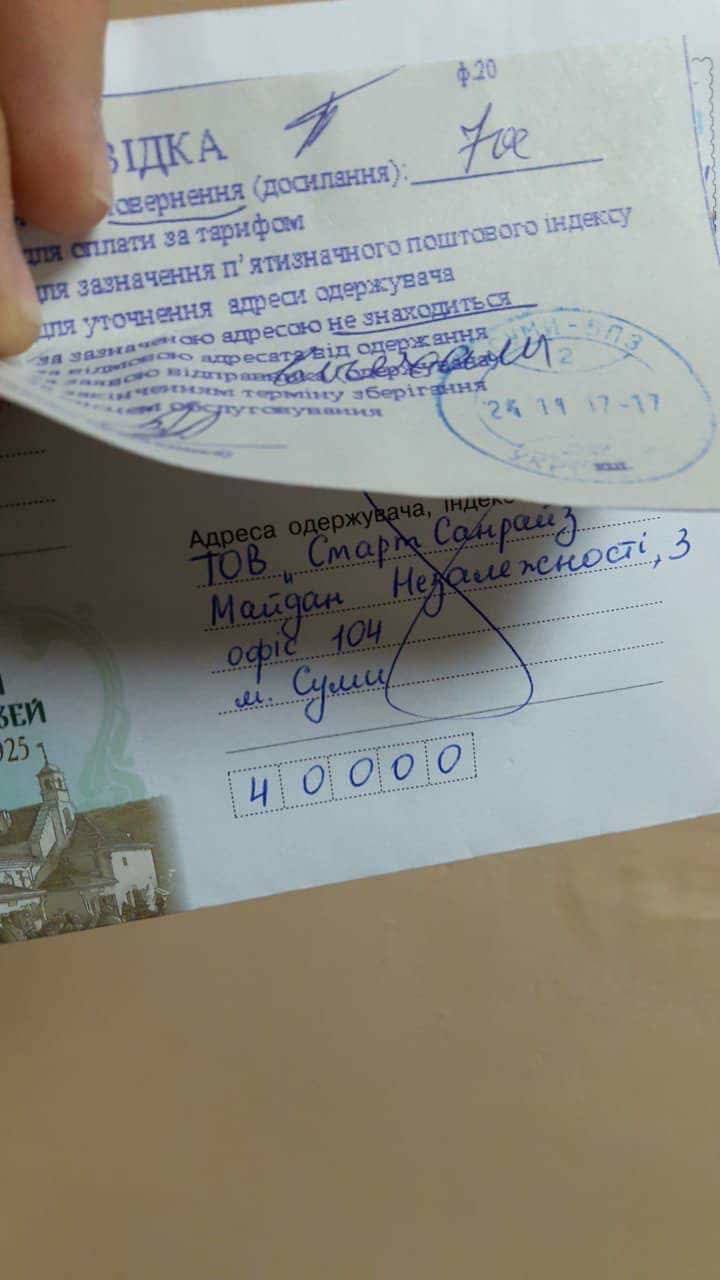 ф.20
ВІДКА
повернення (досилання):
для оплати за тарифом
для зазначення п'ятизначного поштового індексу
для уточнення адреси одержувача
за зазначеною адресою не знаходиться
за відмовою адресата від одержання
за заявою відправника (одержувача)
закінченням терміну зберігання
обслуговування
СУМИ-ВПЗ
2
24 11 17-17
Адреса одержувача, індекс
ТОВ „Смарт Санрайз
Майдан Незалежності, 3
офіс 104
м. Суми
40000
ЗЕЙ
025